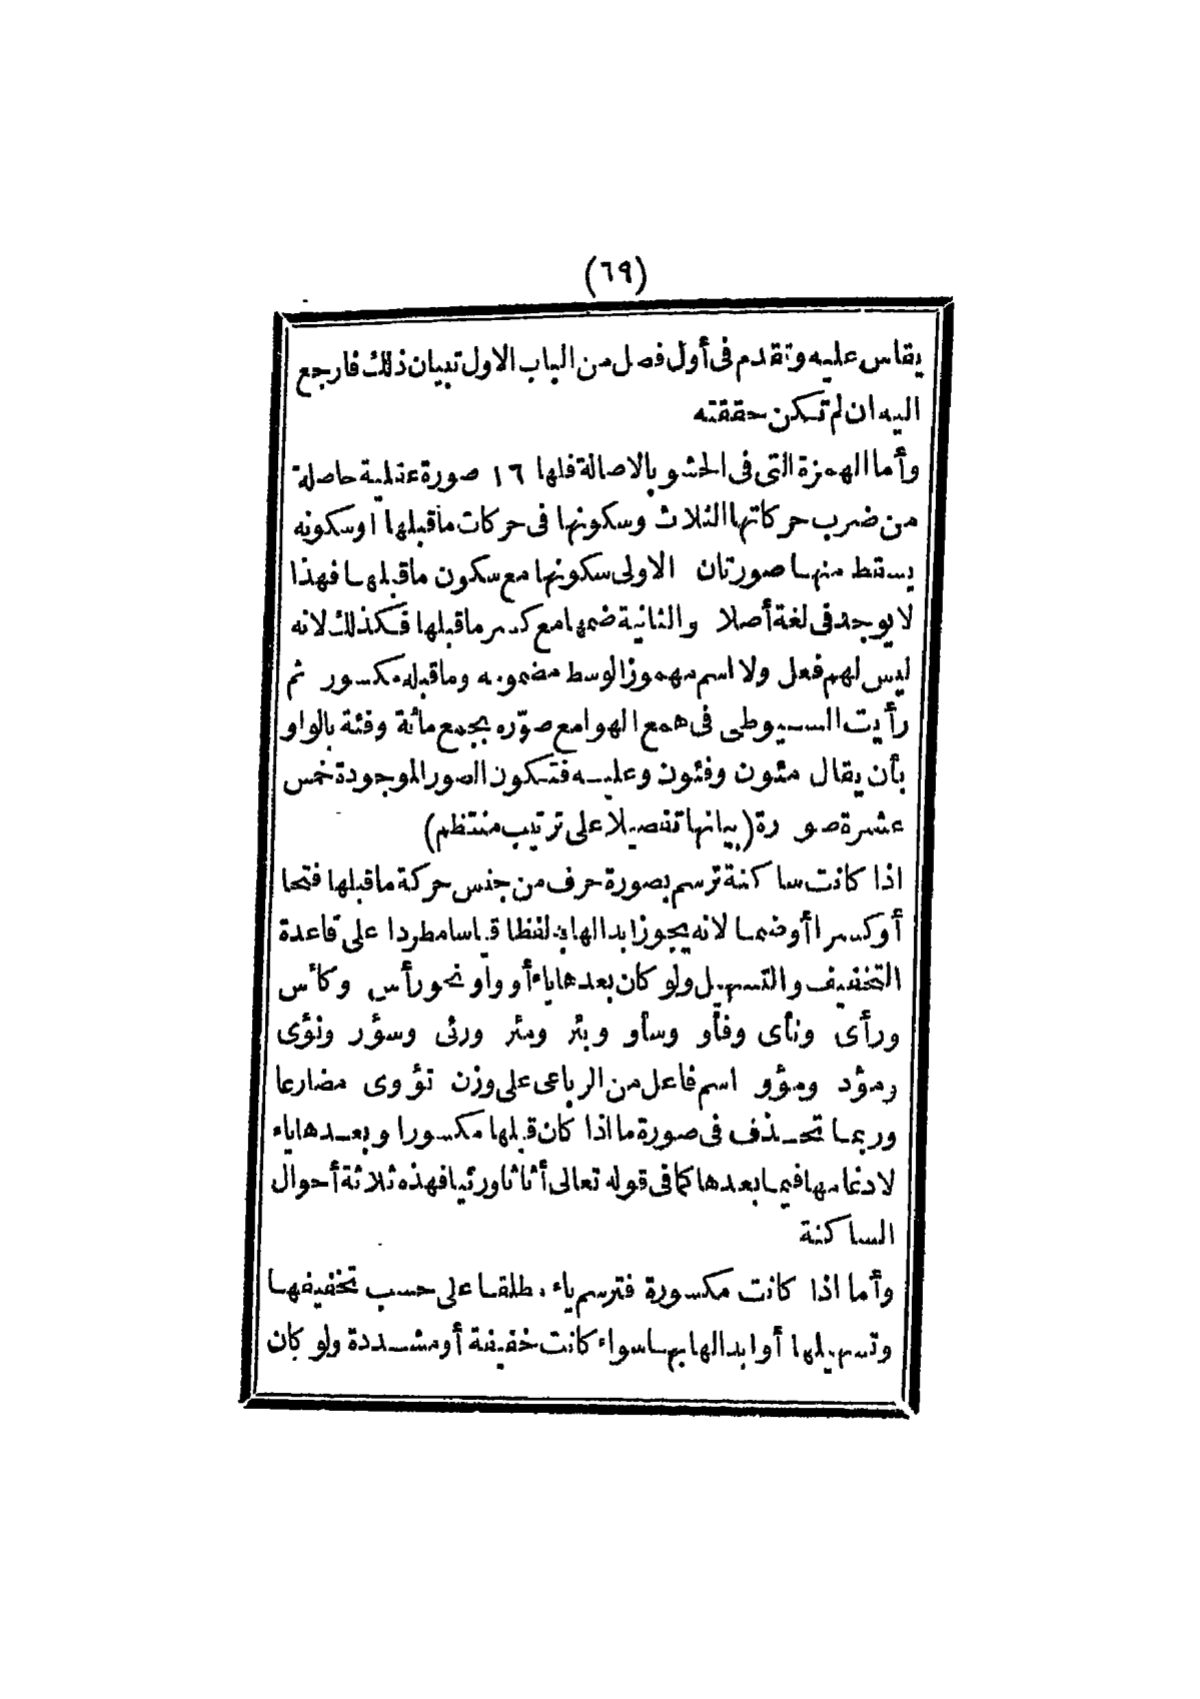 (٦٩)
يقاس عليه وتقدم فى أول فصل من الباب الاول تبيان ذلك فارجع
اليه ان لم تكن حققته
وأما الهمزة التى فى الحشو بالاصالة فلها ١٦ صورة عقلية حاصلة
من ضرب حركاتها الثلاث وسكونها فى حركات ما قبلها أو سكونه
يسقط منها صورتان الاولى سكونها مع سكون ما قبلها فهذا
لا يوجد فى لغة أصلا والثانية ضمها مع كسر ما قبلها فكذلك لانه
ليس لهم فعل ولا اسم مهموز الوسط مضمومه وما قبله مكسور ثم
رأيت السيوطى فى همع الهوامع صوّره بجمع مائة وفئة بالواو
بأن يقال مئون وفئون وعليه فتكون الصور الموجودة خمس
عشرة صورة (بيانها تفصيلا على ترتيب منتظم)
اذا كانت ساكنة ترسم بصورة حرف من جنس حركة ما قبلها فتحا
أو كسرا أو ضما لانه يجوز ابدالها به لفظا قياسا مطردا على قاعدة
التخفيف والتسهيل ولو كان بعدها ياء أو واو نحو رأس وكأس
ورأى ونأى وفأو وسأو وبئر ومئر ورئى وسؤر ونؤى
ومؤد ومؤو اسم فاعل من الرباعى على وزن نؤوى مضارعا
وربما تحذف فى صورة ما اذا كان قبلها مكسورا وبعدها ياء
لادغامها فيما بعدها كما فى قوله تعالى أثاثا ورئيا فهذه ثلاثة أحوال
الساكنة
وأما اذا كانت مكسورة فترسم ياء مطلقا على حسب تخفيفها
وتسهيلها أو ابدالها بها سواء كانت خفيفة أو مشددة ولو كان